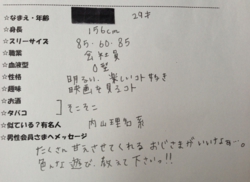 ☆なまえ・年齢 29才
☆身長 156cm
☆スリーサイズ 85.60.85
☆職業 会社員
☆血液型 O型
☆性格 明るい、楽しいコト好き
☆趣味 映画を見るコト
☆お酒 そこそこ
☆タバコ
☆似ている？有名人 内山理名系
☆男性会員さまへメッセージ
たくさん甘えさせてくれるおじさまがいいなぁー。
色んな遊び、教えて下さいっ!!